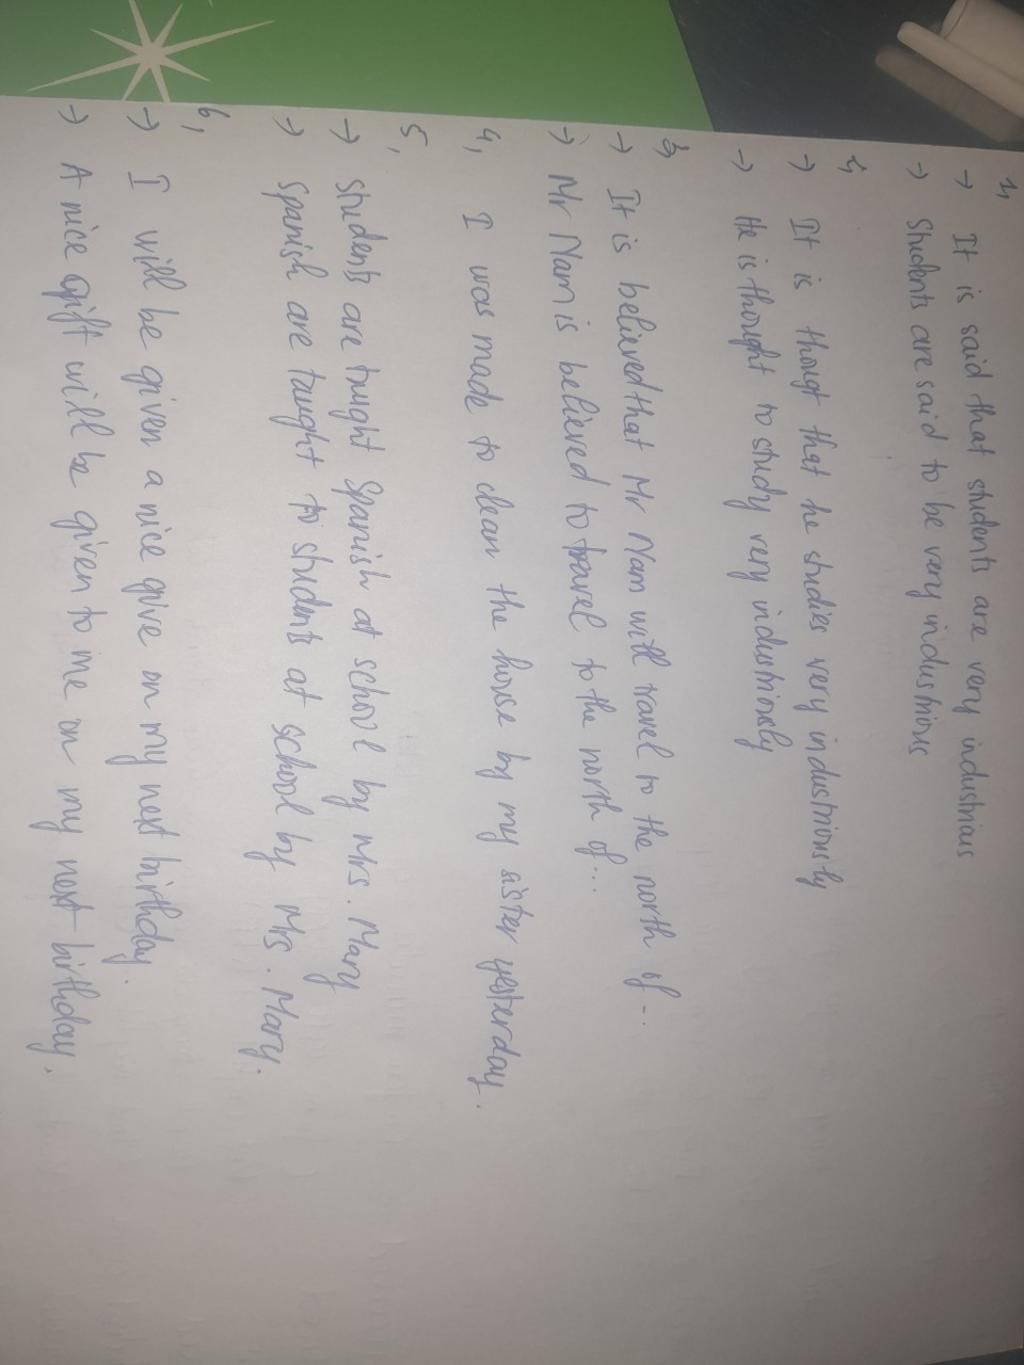 1,
→ It is said that students are very industrious
→ Students are said to be very industrious
2,
→ It is thougt that he studies very industriously
→ He is thought to study very industriously
3,
→ It is believed that Mr Nam will travel to the north of...
→ Mr Nam is believed to travel to the north of...
4, I was made to clean the house by my sister yesterday.
5,
→ Students are taught Spanish at school by Mrs. Mary
→ Spanish are taught to students at school by Mrs. Mary.
6,
→ I will be given a nice give on my next birthday.
→ A nice gift will be given to me on my next birthday.